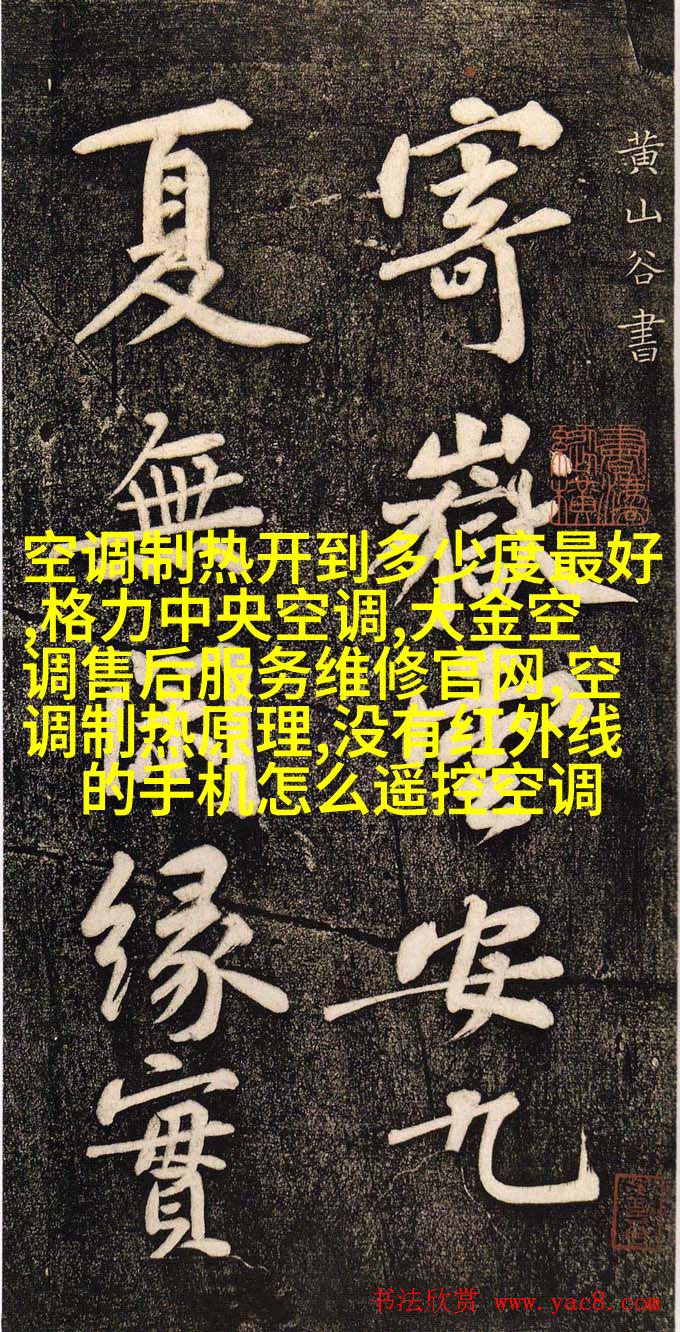 黄山谷書
寄嶽雲安九
夏無緣實
空调制热开到多少度最好
,格力中央空调,大金空
调售后服务维修官网,空
调制热原理,没有红外线
的手机怎么遥控空调
书法欣赏 www.yac8.com